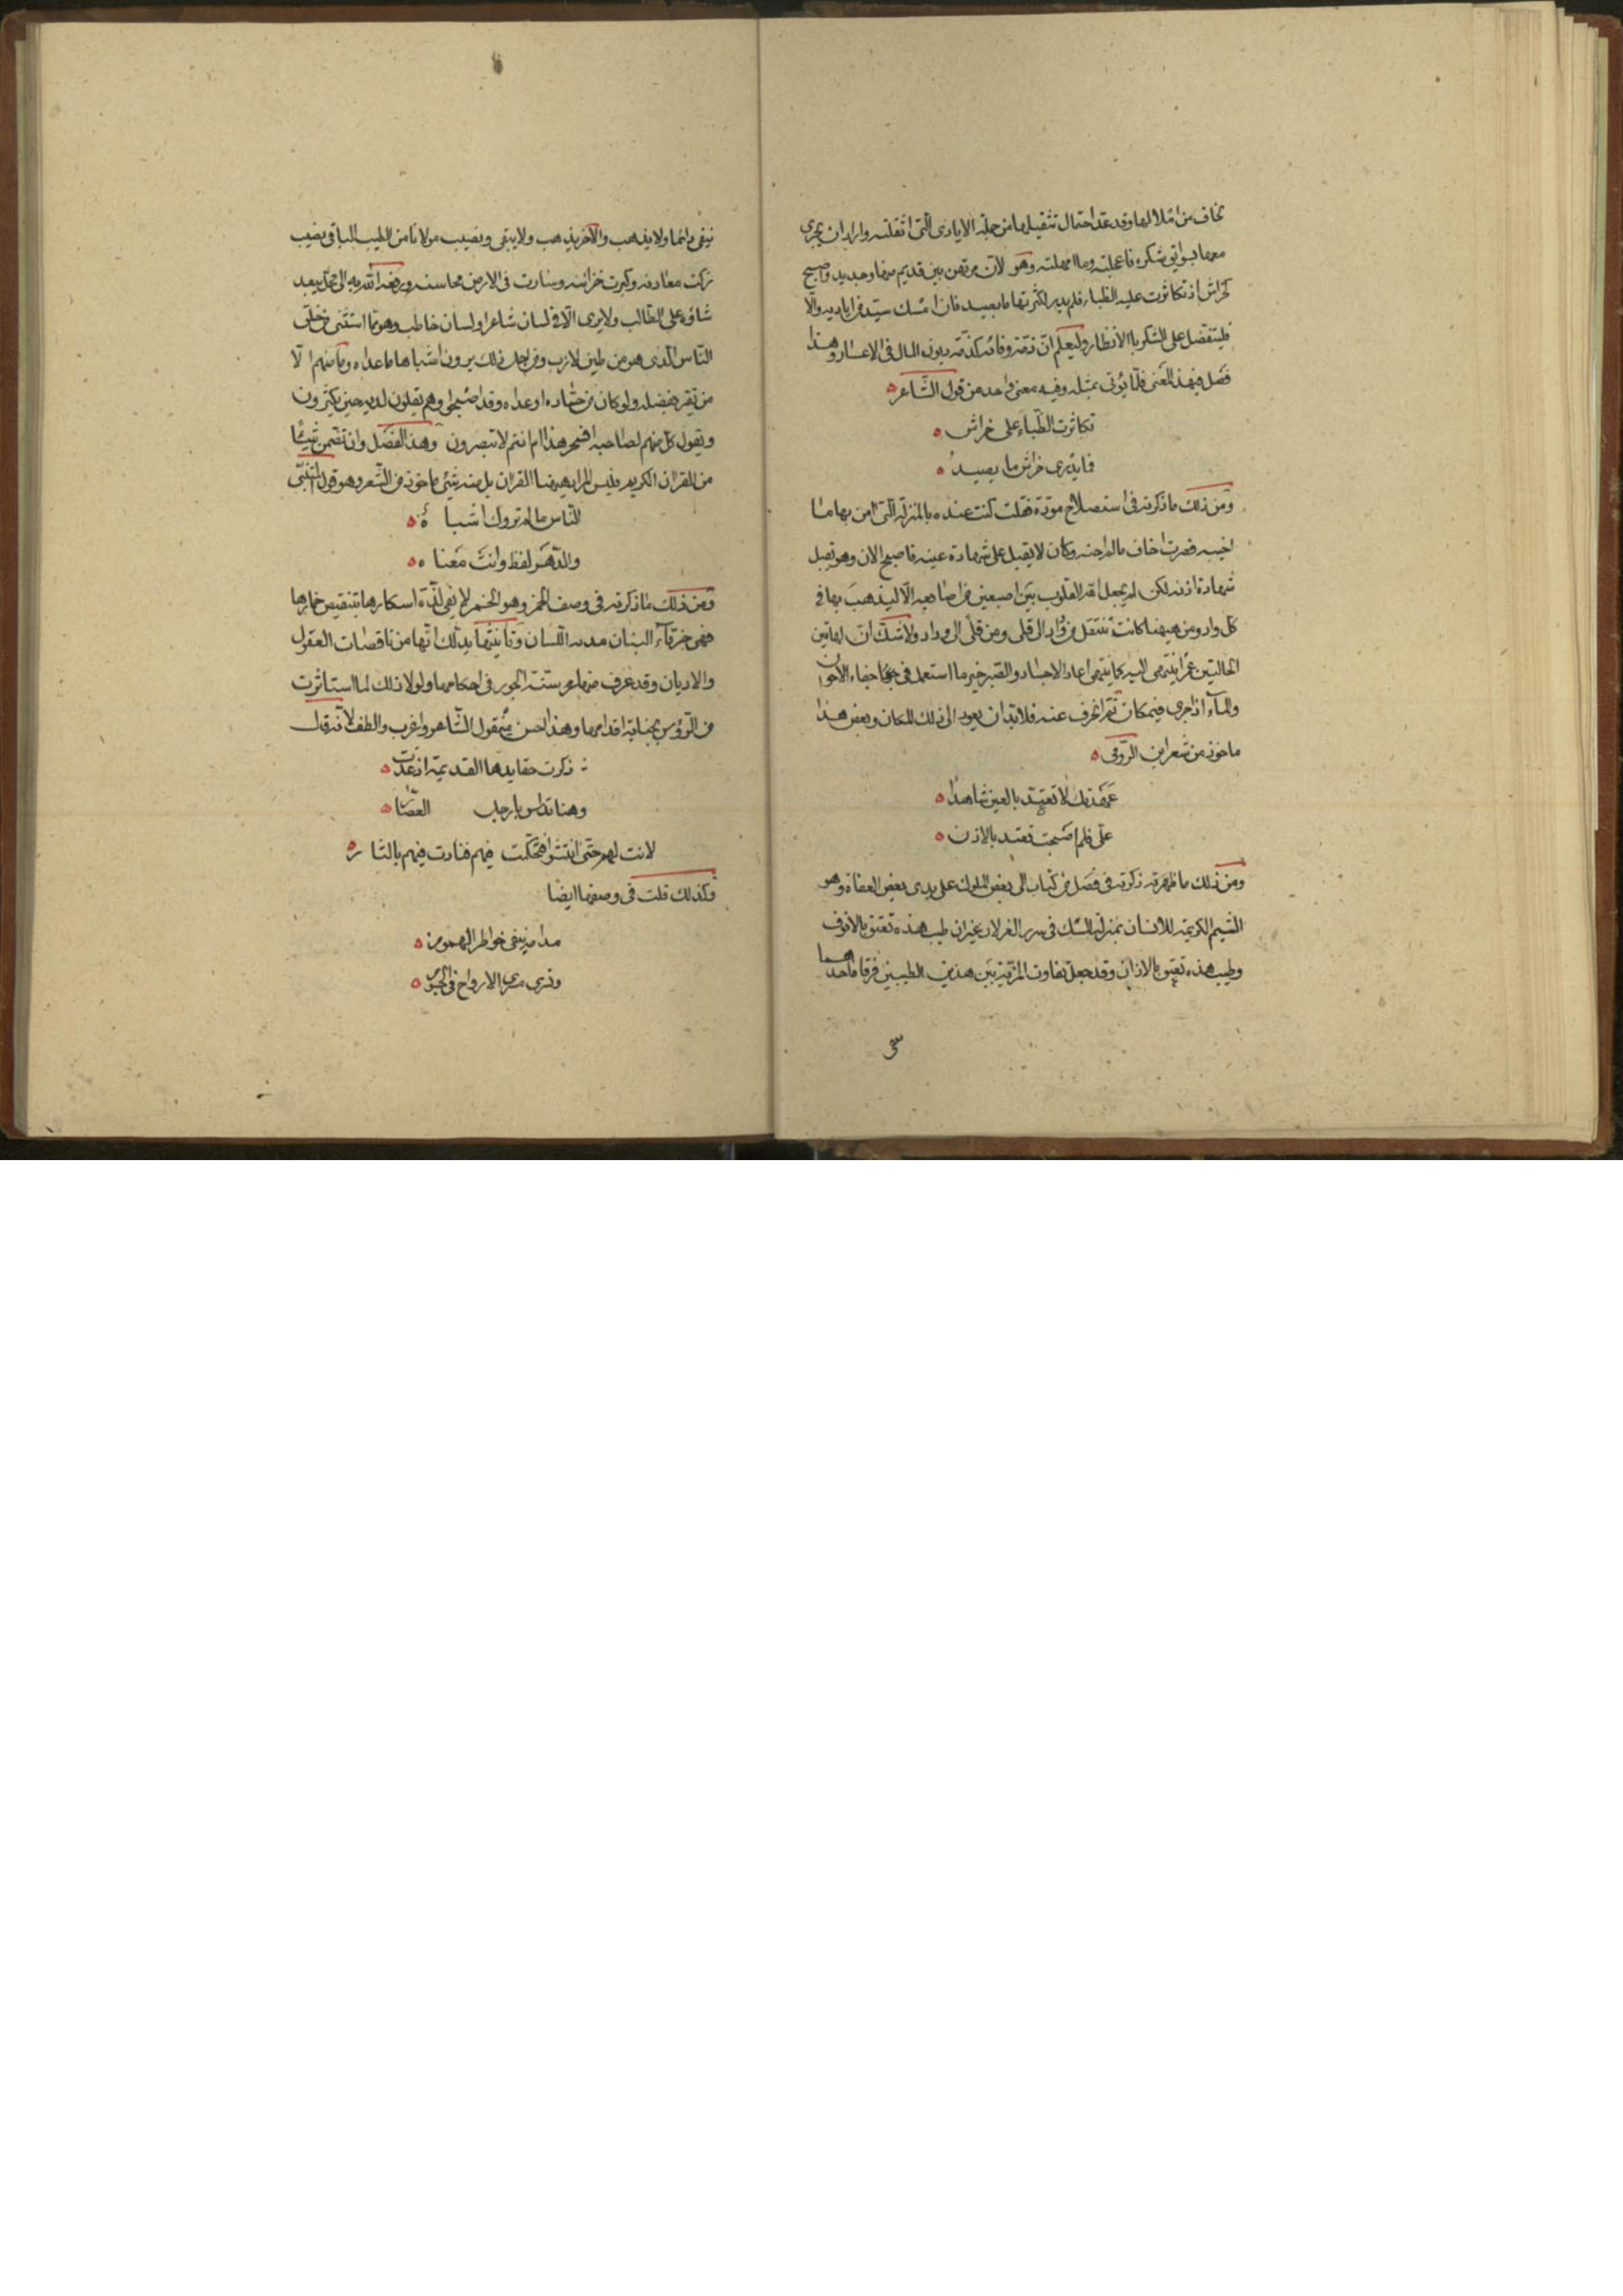 يخاف من املالها وقد عقد احتمال تثقيلها من جملة الايادى التى اثقلته واراد ان يجرى
معها سوابق شكره فاعجلته وما امهلته وهو الآن مرتهن بين قديم منها وجديد واصبح
كخراش اذ تكاثرت عليه الظباء فلم يدر لكثرتها ما يصيد فان امسك سيدنا من اياديه والا
فليتفضل على الشكر بالانظار وليعلم ان ذمة وفائه كذمة مديون المال فى الاعسار وهذا
فصل فى هذا المعنى قلما يؤتى بمثله وفيه معنى واحد من قول الشاعر
تكاثرت الظباء على خراش
فما يدرى خراش ما يصيد
ومن ذلك ما ذكرته فى استصلاح مودة فقلت كنت عنده بالمنزلة التى امن بها مما
اخيه فصرت اخاف مالم اجنه وكان لا يقبل على شهادة عينه فاصبح الان وهو يقبل
شهادة اذنه لكن لم يجعل الله القلوب بين اصبعين من اصابعه الا ليذهب بها فى
كل واد ومن ههنا كانت تنتقل من وداد الى قلى ومن قلى الى وداد ولا شك ان لهاتين
الحالتين عمرا ينتهى اليه كما ينتهى اعمار الاجساد والصبر خير ما استعمل فى جفاء الاخوان
والماء اذا جرى فى مكان ثم انحرف عنه فلا بد ان يعود الى ذلك المكان وبعض هذا
ماخوذ من شعر ابن الرومى
عهدتك لا تعتد بالعين شاهدا
على فلم اصبحت تعتد بالاذن
ومن ذلك ما ذكرته فى فصل من كتاب الى بعض الملوك على يدى بعض العفاة وهو
الشيم الكريمة للانسان بمنزلة المسك فى سرر الغزلان غير ان طيب هذه تعبق بالانوف
وطيب هذه تعبق بالاذان وقد جعل تفاوت المزية بين هذين الطيبين فرقا فاحدهما
يبقى دائما ولا يذهب والآخر يذهب ولا يبقى ونصيب مولانا من الطيب الباقى نصيب
زكت معادنه وكبرت خزائنه وسارت فى الارض محاسنه ورفعه الله به الى محل يبعد
شاؤه على الطالب ولا يرى الا فى لسان شاعر او لسان خاطب وهو مما استثنى من خلق
الناس الذى هو من طين لازب ومن اجل ذلك يرون اشباها ما عداه وما منهم الا
من تقر بفضله ولو كان من حساده او عداه وقد اصبحوا وهم يقلون لديه حين يكثرون
ويقول كل منهم لصاحبه افسحر هذا ام انتم لا تبصرون وهذا الفصل وان تضمن شيئا
من القران الكريم فليس المراد ههنا القران بل منه شئ ماخوذ من الشعر وهو قول المتنبى
الناس ما لم يروك اشباه
والدهر لفظ وانت معناه
ومن ذلك ما ذكرته فى وصف الخمر وهو الخمر لا يفى لذة اسكارها بتنغيص خمارها
فهى خرقاء البنان بذية اللسان وتانيثها يدلك انها من ناقصات العقول
والاديان وقد عرف منها سنة الجور فى احكامها ولولا ذلك لما استاثرت
من الرؤوس بجناية اقدامها وهذا احسن من قول الشاعر واغرب والطف لانه قال
ذكرت حقايدها القديمة اذ غدت
وهنا تداس بارجل العصار
لانت لهم حتى انتشوا فتحكمت فيهم فنادت فيهم بالثار
وكذلك قلت فى وصفها ايضا
مدامة ينفى خواطر الهموم
وتسرى مسرى الارواح فى الجسوم